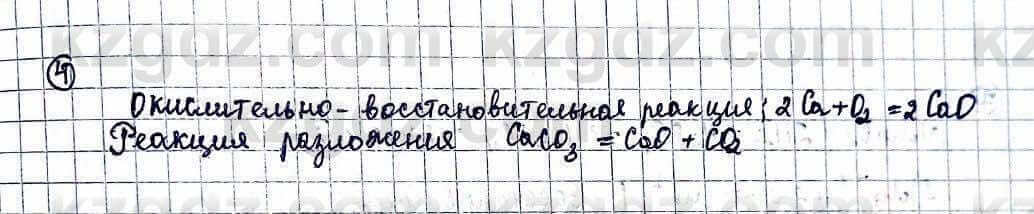 kzgdz.com kzgdz.com kz
④
Окислительно-восстановительная реакция; 2Ca+O₂ =2CaO
Реакция разложения CaCO₃ =CaO + CO₂